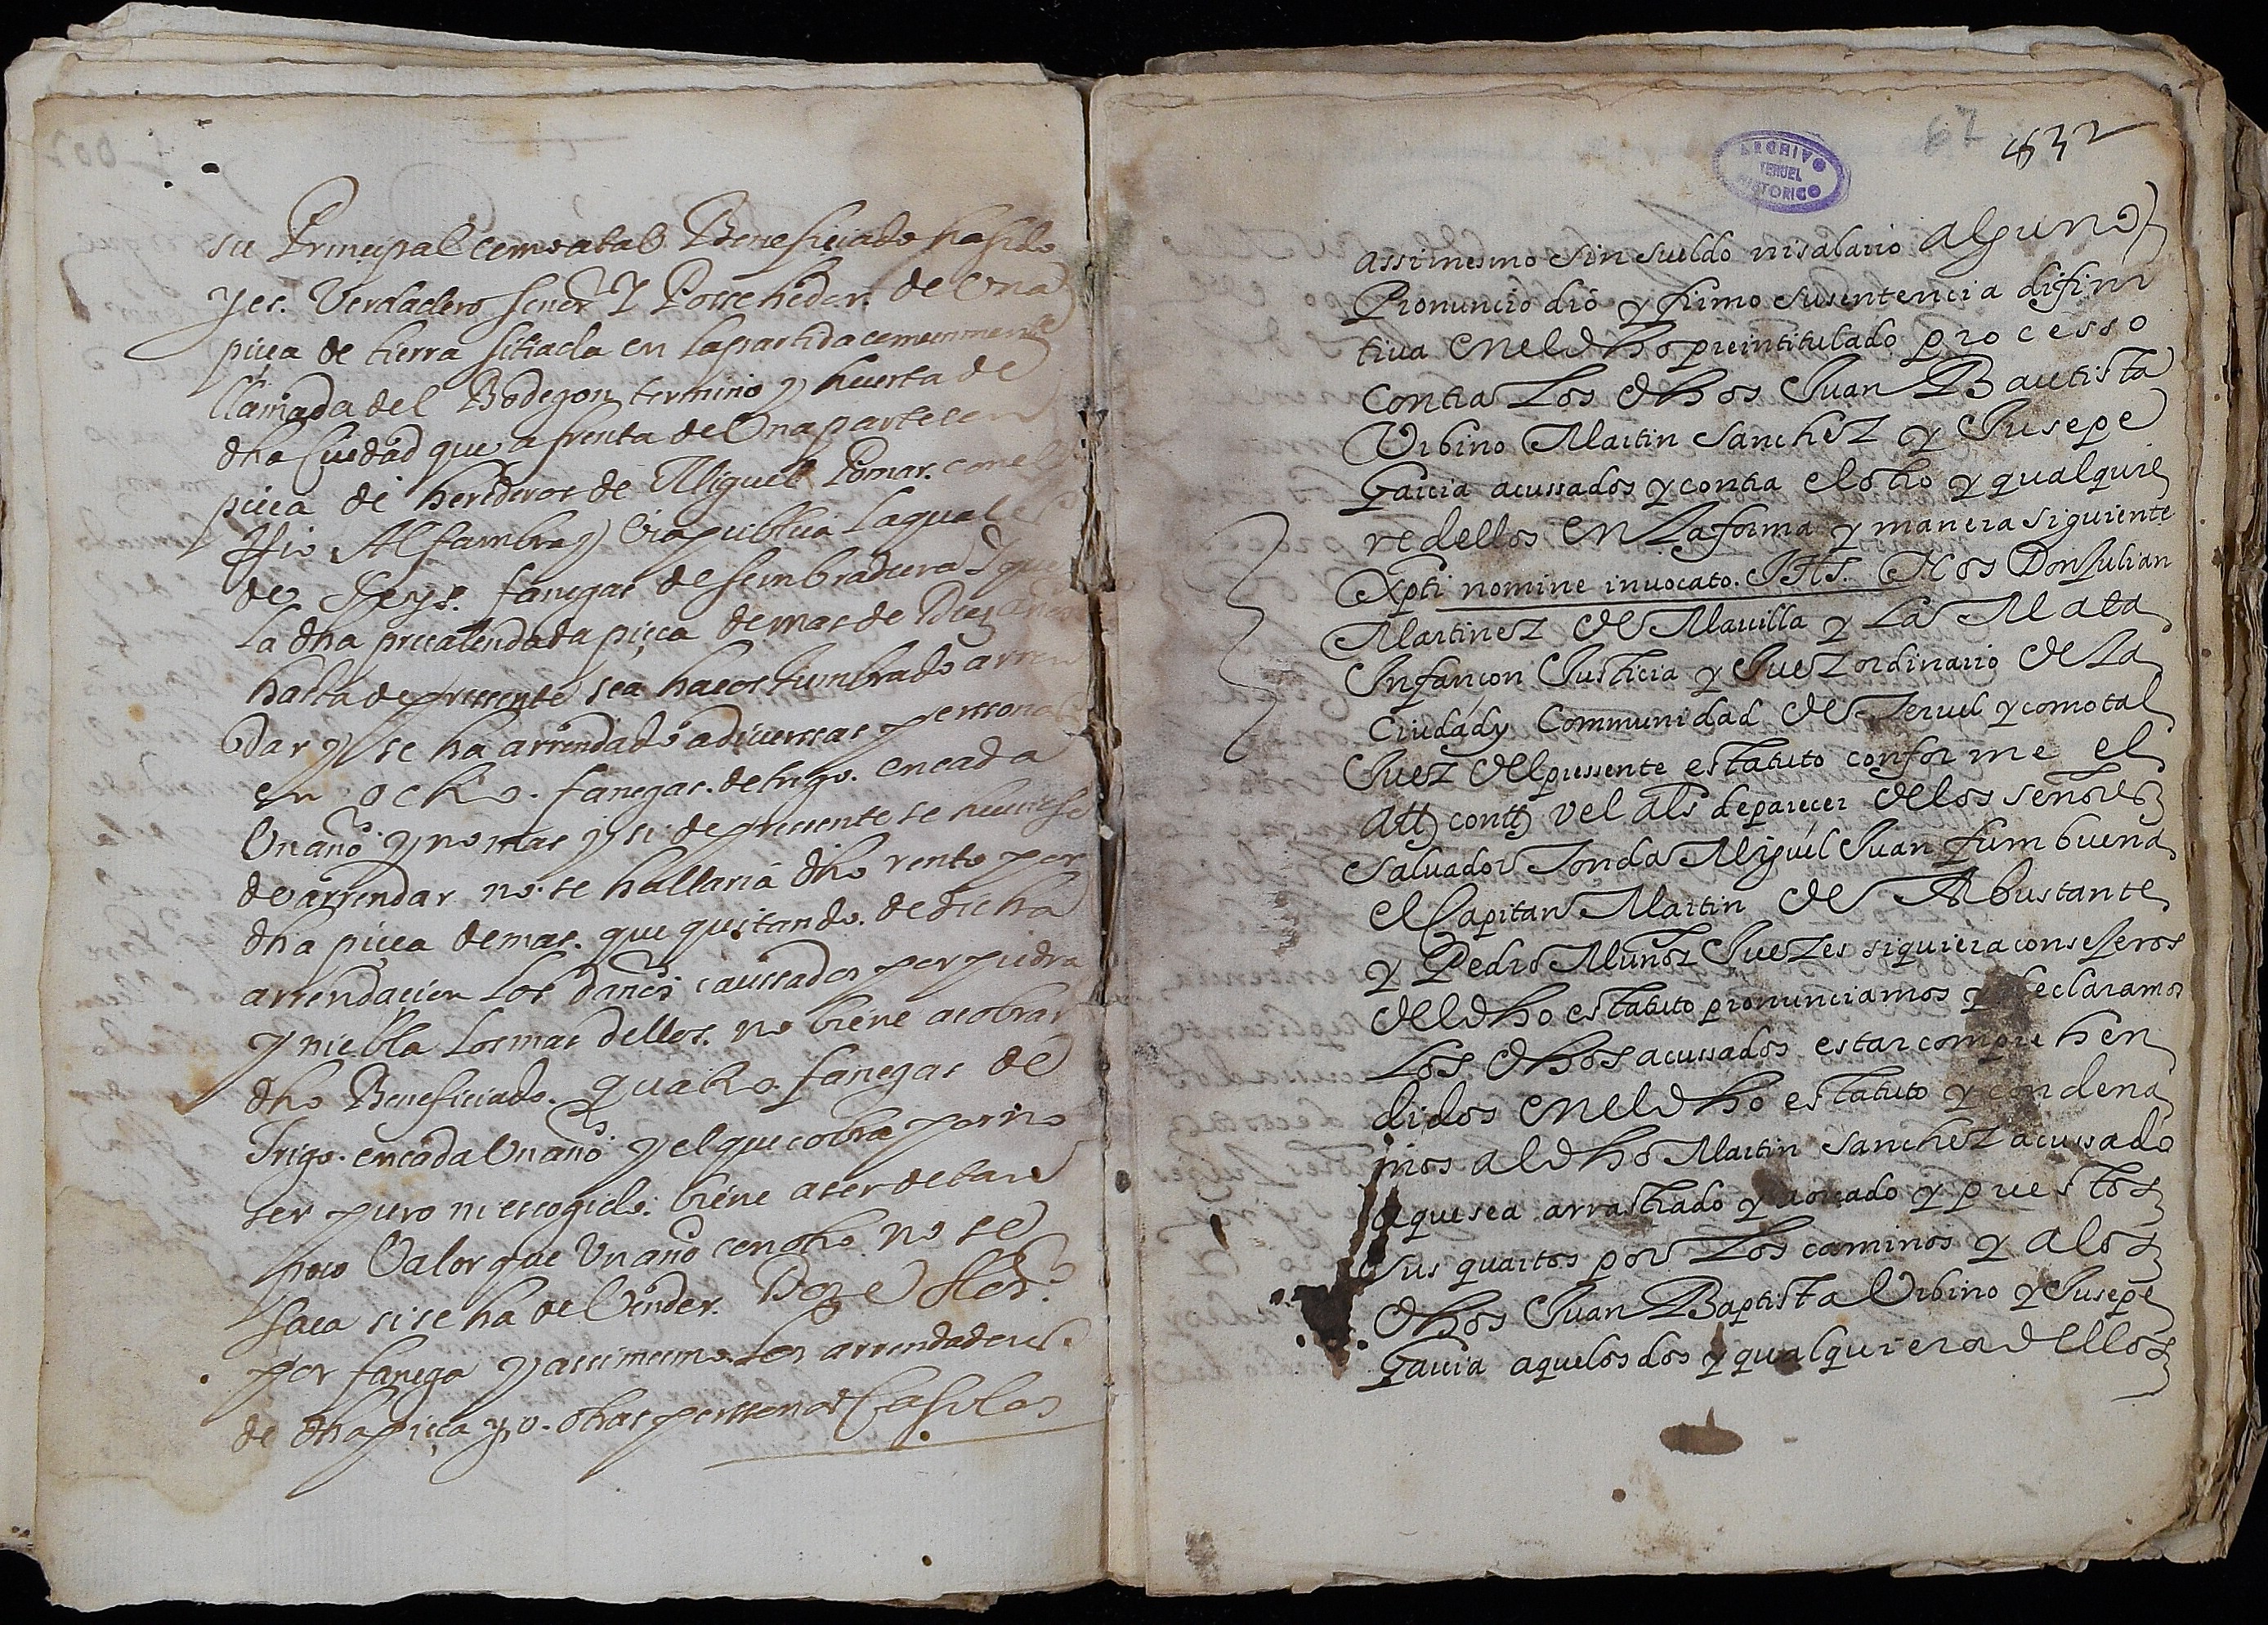 su Principal como a tal Beneficiado ha sido
y es. Verdadero señor Y Possehedor. de Una
pieça de tierra sitiada en la partida comunmente
llamada del Bodegon termino y huerta de
dha Ciudad que afrenta de Una parte con
pieça de herederos de Miguel Pomar. con el
Rio Alfambra y Via publica la qual es
de Seys. fanegas de sembradura Y que
la dha precalendada pieça de mas de Diez años
hasta de pressente sea hacostumbrado arren
dar y se ha arrendado a diuerssas perssonas
en ocho. fanegas. de trigo. en cada
Un año y no mas y si de pressente se huuiesse
de arrendar no se hallaria dho rento por
dha pieça demas. que quitando. de dicha
arrendacion los daños caussados por piedra
y niebla los mas dellos. no biene a cobrar
dho Beneficiado. quatro. fanegas de
Trigo. en cada Un año y el que cobra por no
ser puro ni escogido. biene a ser de tan
poco Valor que Un año con otro no se
saca si se ha de Vender. Doze
por fanega y assimesmo los arrendadores.
de dha pieça y o. otras perssonas
67
632
ARCHIVO
TERUEL
HISTORICO
assimesmo sin sueldo ni salario alguno
Pronuncio dio y firmo su sentencia difini
tiua en el dho preintitulado processo
contra Los dhos Juan Bautista
Vrbino Martin Sanchez y Jusepe
Garcia acussados y contra el otro y qualquie
re dellos en La forma y manera siguiente
Xpti nomine inuocato. JHS. Nos Don Julian
Martinez de Marzilla y La Mata
Infançon Justicia y Juez ordinario de La
Ciudad y Communidad de Teruel y como tal
Juez del pressente estatuto conforme el
Att contt vel als de parecer de los señores
Saluador Miguel Juan fumbuena
el Capitan Martin de
y Pedro Muñoz Juezes siquiera consejeros
del dho estatuto pronunciamos y declaramos
Los dhos acussados estar comprehen
didos en el dho estatuto y condena
mos al dho Martin Sanchez acussado
a que sea arrastrado y aorcado y puestos
sus quartos por Los caminos y a los
dhos Juan Baptista Vrbino y Jusepe
Garcia aquelos dos y qualquiera dellos